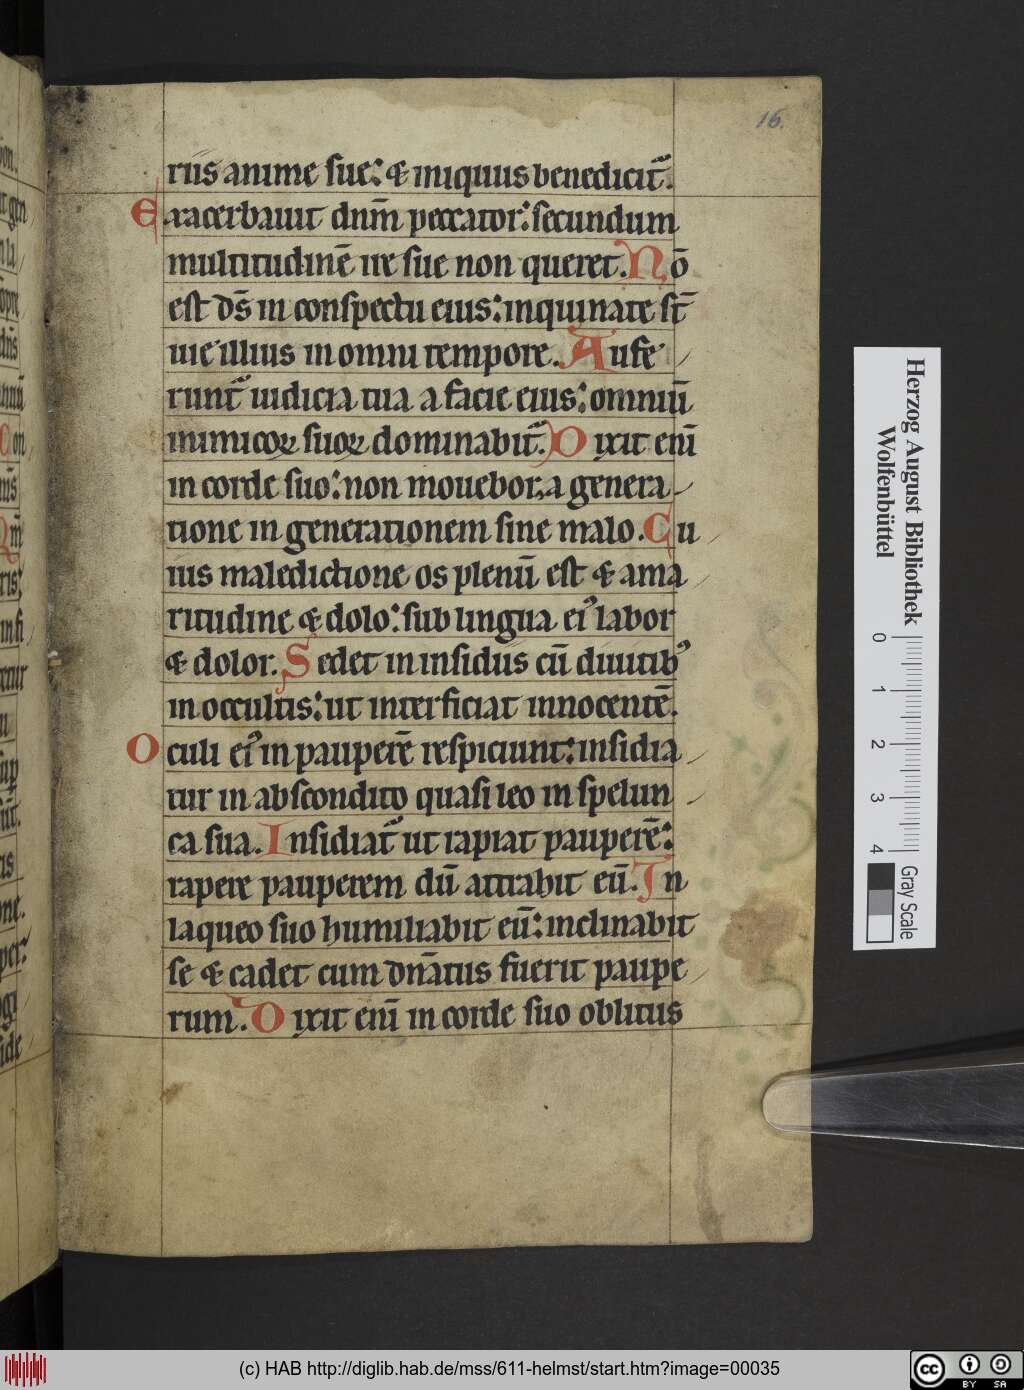 16.
riis anime sue: & iniquus benedicit᷑.
Exacerbauit dnm̄ peccator: secundum
multitudinē ire sue non queret. Nō
est ds̄ in conspectu eius: inquinate st̄
uie illius in omni tempore. Aufe
runt᷑ iudicia tua a facie eius: omniū
inimicoꝝ suoꝝ dominabit᷑. Dixit eni̅
in corde suo: non mouebor, a genera
tione in generationem sine malo. Cu
ius maledictione os plenū est & ama
ritudine & dolo: sub lingua eiꝰ labor
& dolor. Sedet in insidiis cū diuitibꝰ
in occultis: ut interficiat innocentē.
Oculi eiꝰ in pauperē respiciunt: insidia
tur in abscondito quasi leo in spelun
ca sua. Insidiat᷑ ut rapiat pauperē:
rapere pauperem dū attrahit eū. In
laqueo suo humiliabit eū: inclinabit
se & cadet cum dn̄atus fuerit paupe
rum. Dixit eni̅ in corde suo oblitus
Herzog August Bibliothek
Wolfenbüttel
0 1 2 3 4
Gray Scale
(c) HAB http://diglib.hab.de/mss/611-helmst/start.htm?image=00035
cc BY SA